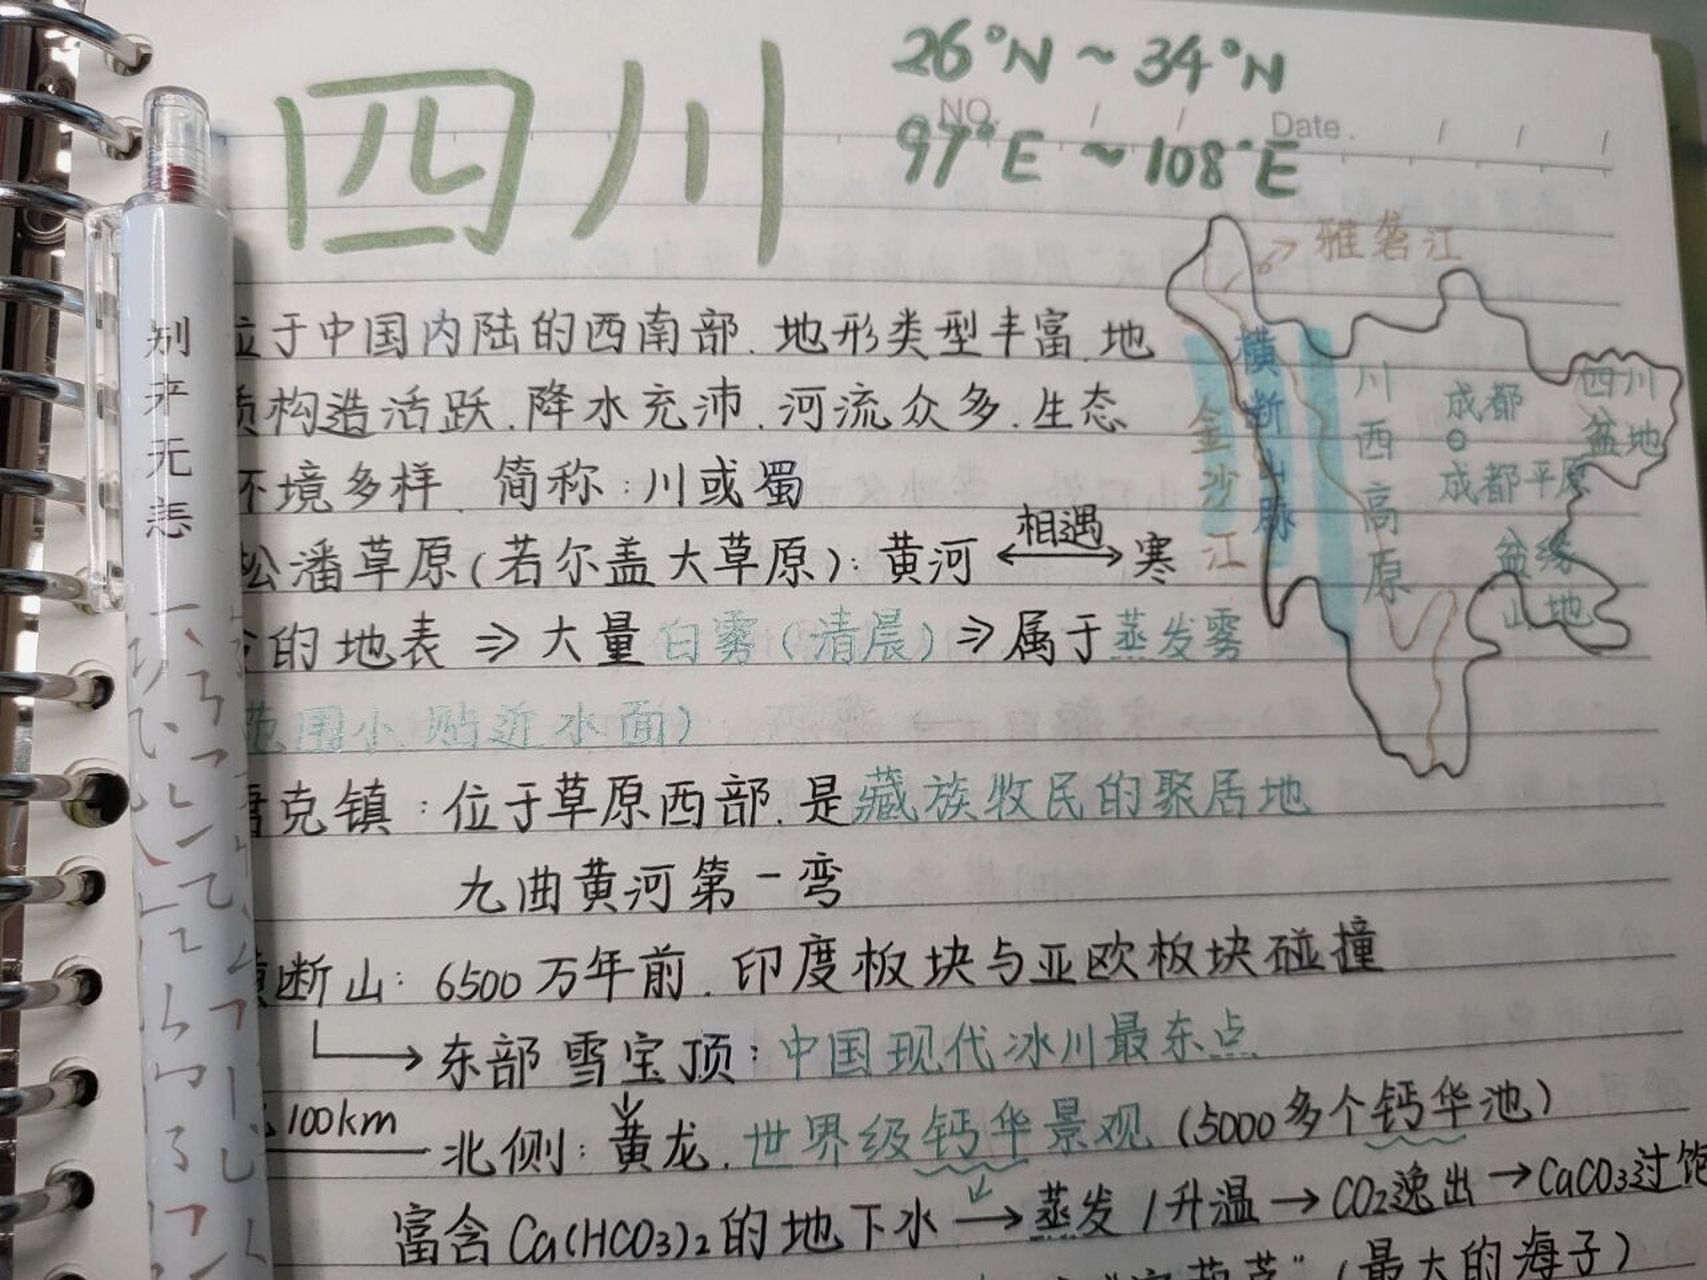 四川
26°N ~ 34°N
97°E ~ 108°E
NO.
Date.
别来无恙
位于中国内陆的西南部.地形类型丰富.地
质构造活跃.降水充沛.河流众多.生态
环境多样.简称:川或蜀
松潘草原(若尔盖大草原):黄河 ←相遇→ 寒
的地表 ⇒ 大量白雾(清晨) ⇒ 属于蒸发雾
范围小.贴近水面)
唐克镇:位于草原西部.是藏族牧民的聚居地
九曲黄河第一弯
横断山:6500万年前.印度板块与亚欧板块碰撞
→东部雪宝顶:中国现代冰川最东点
100km
北侧:黄龙.世界级钙华景观(5000多个钙华池)
富含Ca(HCO3)2的地下水→蒸发/升温→CO2逸出→CaCO3过饱
(最大的海子)
雅砻江
金沙江
横断山脉
川西高原
成都
成都平原
四川盆地
盆缘山地